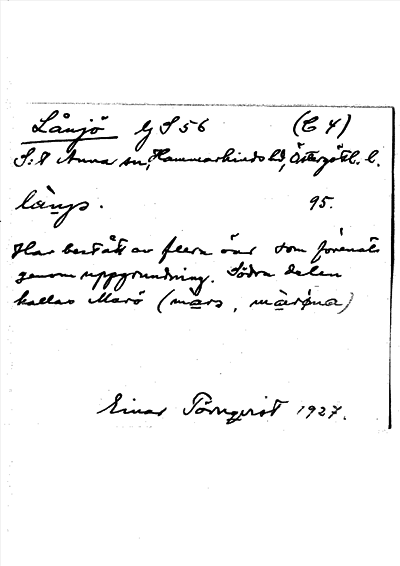 Långö Gj S 56 (C 4)
S:t Anna sn, Hammarkinds hd, Östergötl. l.
làŋgs. 95.
Har bestått av flera öar som förenats
genom uppgrundning. Södra delen
kallas Marö (mars, màrøna)
Einar Törnqvist 1927.